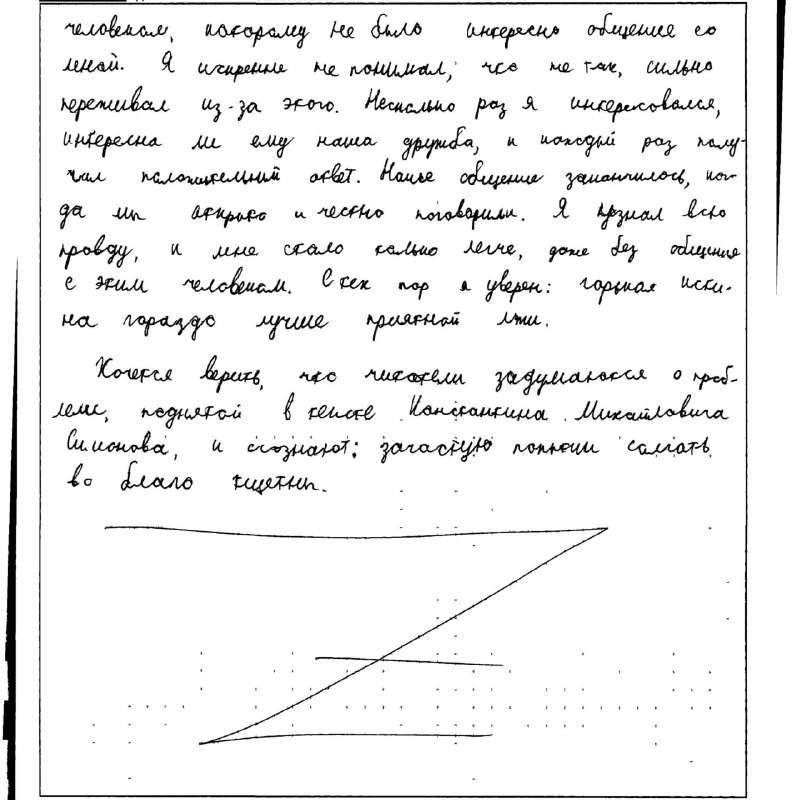 человеком, которому не было интересно общение со
мной. Я искренне не понимал, что не так, сильно
переживал из-за этого. Несколько раз я интересовался,
интересна ли ему наша дружба, и каждый раз полу-
чал положительный ответ. Наше общение закончилось, ког-
да мы открыто и честно поговорили. Я узнал всю
правду, и мне стало только легче, даже без общения
с этим человеком. С тех пор я уверен: горькая исти-
на гораздо лучше приятной лжи.
Хочется верить, что читатели задумаются о проб-
леме, поднятой в тексте Константина Михайловича
Симонова, и осознают: зачастую попытки солгать
во благо тщетны.